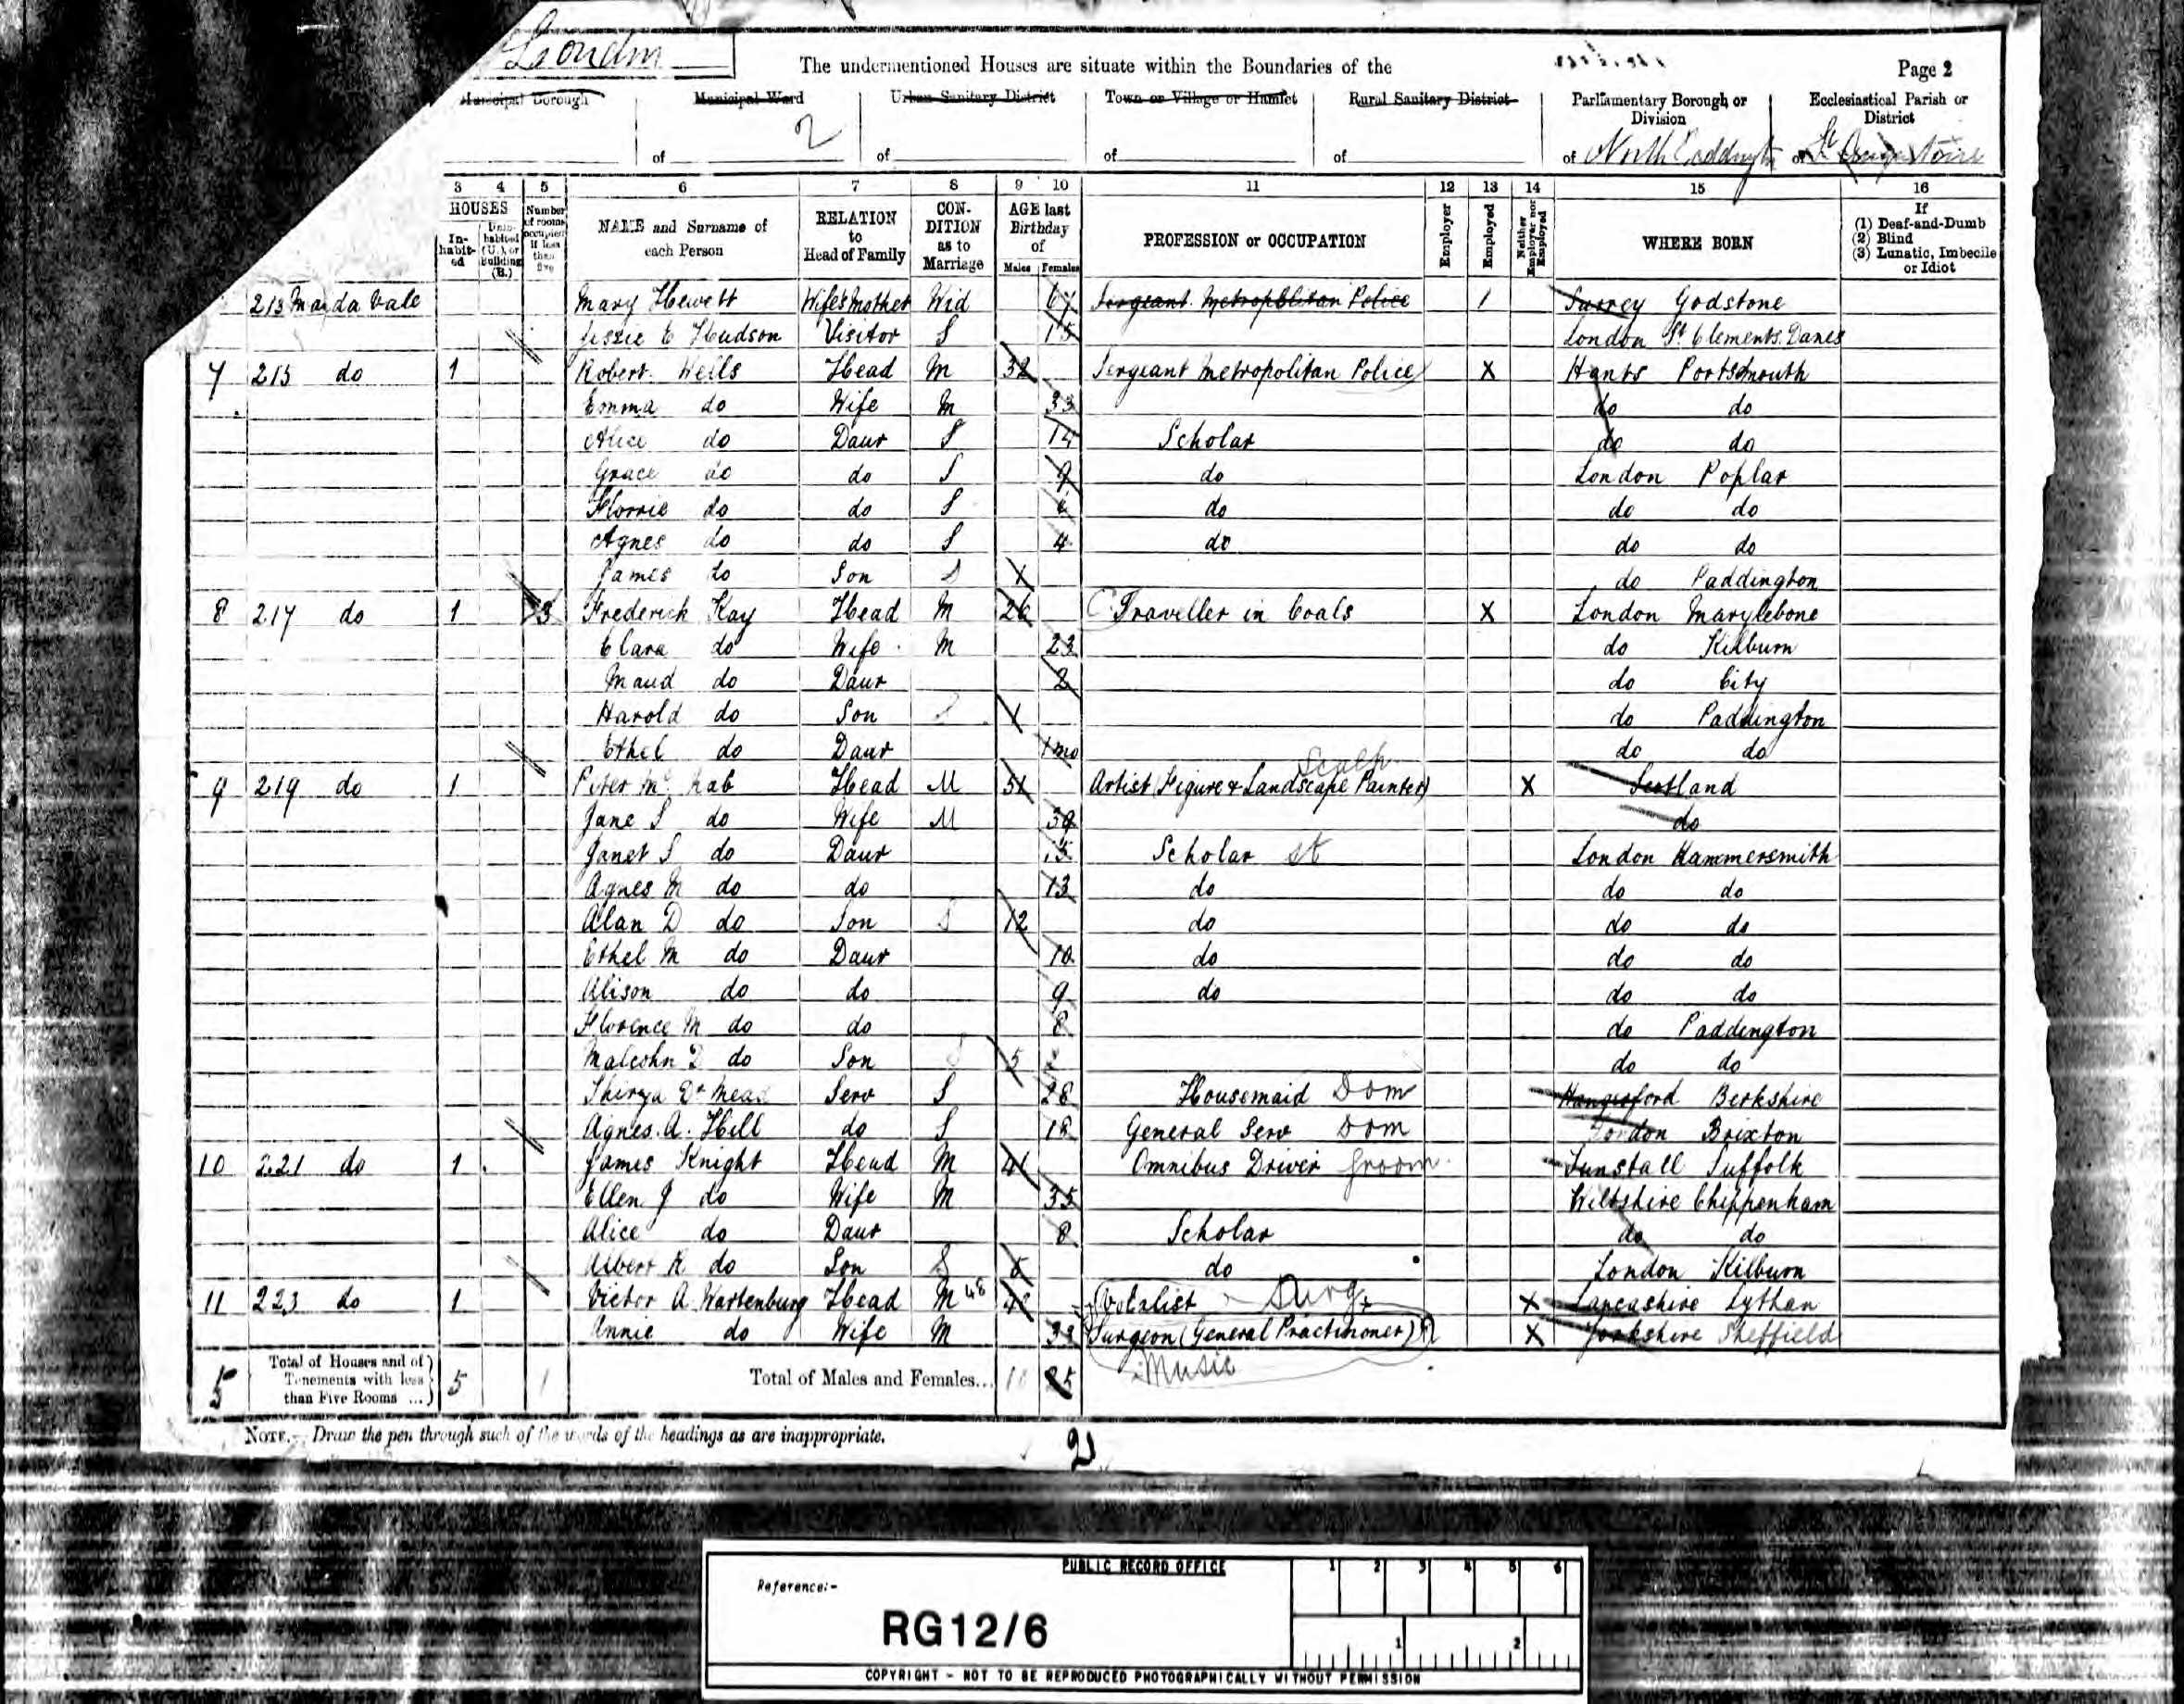 London
The undermentioned Houses are situate within the Boundaries of the
Page 2
Municipal Borough Municipal Ward Urban Sanitary District Town or Village or Hamlet Rural Sanitary District Parliamentary Borough or Division Ecclesiastical Parish or District
2
of of of of of North Paddington of St
3 4 5 6 7 8 9 10 11 12 13 14 15 16
HOUSES
In-habit-ed
Unin-habited (U.), or Building (B.)
Number of rooms occupied if less than five
NAME and Surname of each Person
RELATION to Head of Family
CON-DITION as to Marriage
AGE last Birthday of
Males Females
PROFESSION or OCCUPATION
Employer
Employed
Neither Employer nor Employed
WHERE BORN
If
(1) Deaf-and-Dumb
(2) Blind
(3) Lunatic, Imbecile or Idiot
213 Maida Vale Mary Hewett Wife's Mother Wid 67 Sergeant Metropolitan Police 1 Surrey Godstone
Jessie E Hudson Visitor S 15 London St Clements Danes
7 215 do 1 Robert Wells Head M 32 Sergeant Metropolitan Police X Hants Portsmouth
Emma do Wife M 33 do do
Alice do Daur S 14 Scholar do do
Grace do do S 9 do London Poplar
Florrie do do S do do do
Agnes do do S 4 do do do
James do Son S 1 do Paddington
8 217 do 1 3 Frederick Kay Head M 26 Traveller in Coals X London Marylebone
Clara do Wife M 23 do Kilburn
Maud do Daur 2 do City
Harold do Son S 1 do Paddington
Ethel do Daur 1 mo do do
Sculp
9 219 do 1 Peter Mc Nab Head M 51 Artist (Figure & Landscape Painter) X Scotland
Jane S do Wife M 39 do
Janet S do Daur 15 Scholar St London Hammersmith
Agnes M do do 13 do do do
Alan D do Son S 12 do do do
Ethel M do Daur 10 do do do
Alison do do 9 do do do
Florence M do do 8 do Paddington
Malcolm D do Son S 5 do do
Thirza Mead Serv S 28 Housemaid Dom Hungerford Berkshire
Agnes A. Hill do S 18 General Serv Dom London Brixton
10 221 do 1 James Knight Head M 41 Omnibus Driver Groom Tunstall Suffolk
Ellen J do Wife M 35 Wiltshire Chippenham
Alice do Daur 8 Scholar do do
Albert R do Son S do London Kilburn
11 223 do 1 Victor A Wartenburg Head M 48 Vocalist Surg X Lancashire Lytham
Annie do Wife M 33 Surgeon (General Practitioner) X Yorkshire Sheffield
Music
5 Total of Houses and of Tenements with less than Five Rooms ... 5 1 Total of Males and Females... 10 25
NOTE.— Draw the pen through such of the words of the headings as are inappropriate.
2
PUBLIC RECORD OFFICE
Reference:-
RG12/6
1 2 3 4 5 6
1 2
COPYRIGHT - NOT TO BE REPRODUCED PHOTOGRAPHICALLY WITHOUT PERMISSION